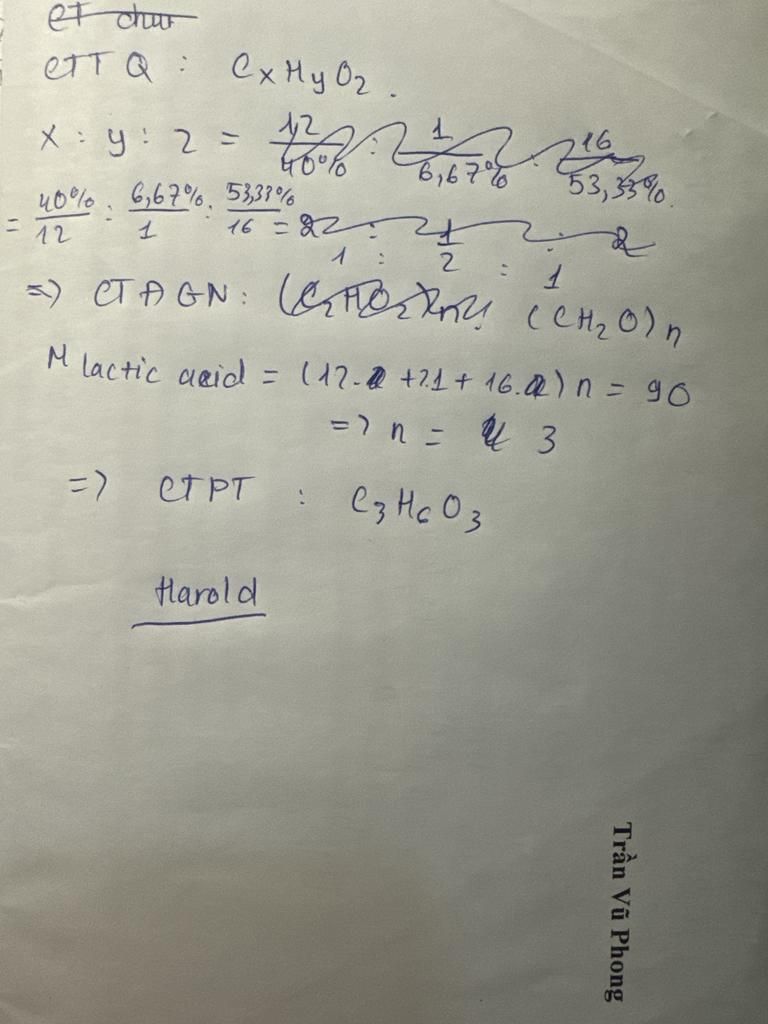 CT chư
CTTQ : CxHyO2.
x : y : z = 12/40% : 1/6,67% : 16/53,33%
= 40%/12 : 6,67%/1 : 53,33%/16 = 2 : 1 : 2
1 : 2 : 1
=> CTĐGN : (C2HO2)n (CH2O)n
M lactic acid = (12. + 2.1 + 16. ) n = 90
=> n = 3
=> CTPT : C3H6O3
Harold
Trần Vũ Phong